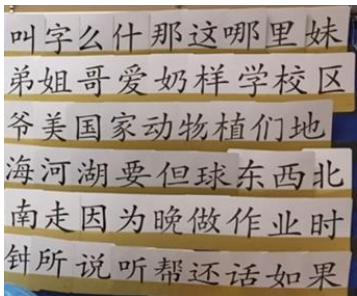 叫字么什那这哪里妹
弟姐哥爱奶样学校区
爷美国家动物植们地
海河湖要但球东西北
南走因为晚做作业时
钟所说听帮还话如果